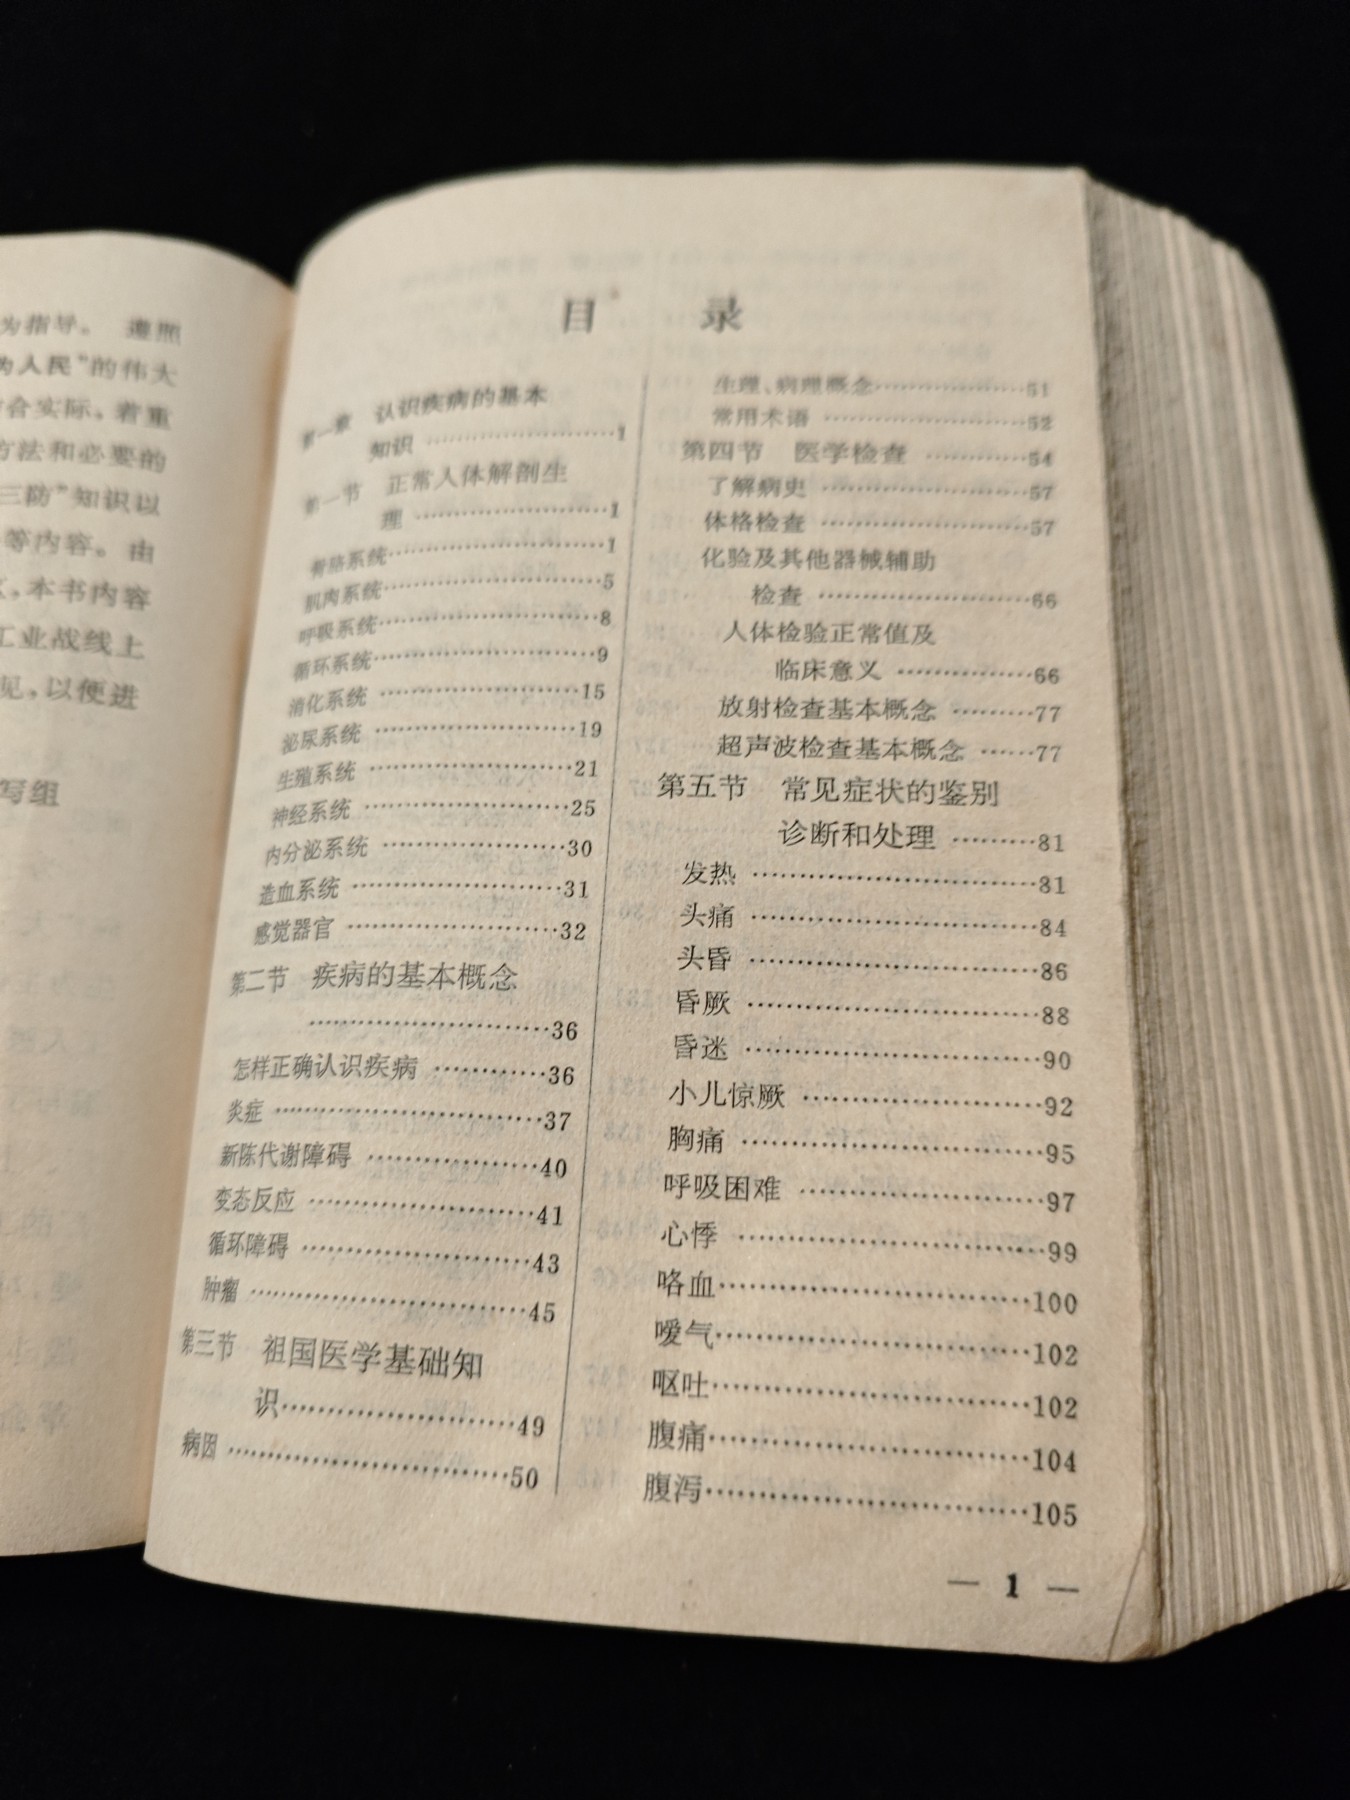 为指导。 遵照
为人民”的伟大
合实际，着重
方法和必要的
三防”知识以
等内容。由
，本书内容
工业战线上
见，以便进
写组
目 录
第一章 认识疾病的基本
知识 ……………1
第一节 正常人体解剖生
理 ……………1
骨骼系统……………1
肌肉系统……………5
呼吸系统……………8
循环系统……………9
消化系统 ……………15
泌尿系统 ……………19
生殖系统 ……………21
神经系统 ……………25
内分泌系统 ……………30
造血系统 ……………31
感觉器官 ……………32
第二节 疾病的基本概念
……………36
怎样正确认识疾病 ………36
炎症 ……………37
新陈代谢障碍 ……………40
变态反应 ……………41
循环障碍 ……………43
肿瘤 ……………45
第三节 祖国医学基础知
识……………49
病因 ……………50
生理、病理概念……………51
常用术语 ……………52
第四节 医学检查 ………54
了解病史 ……………57
体格检查 ……………57
化验及其他器械辅助
检查 ……………66
人体检验正常值及
临床意义 ………66
放射检查基本概念 ………77
超声波检查基本概念 ……77
第五节 常见症状的鉴别
诊断和处理 ………81
发热 ……………81
头痛 ……………84
头昏 ……………86
昏厥 ……………88
昏迷 ……………90
小儿惊厥 ……………92
胸痛 ……………95
呼吸困难 ……………97
心悸 ……………99
咯血……………100
嗳气……………102
呕吐……………102
腹痛……………104
腹泻……………105
— 1 —